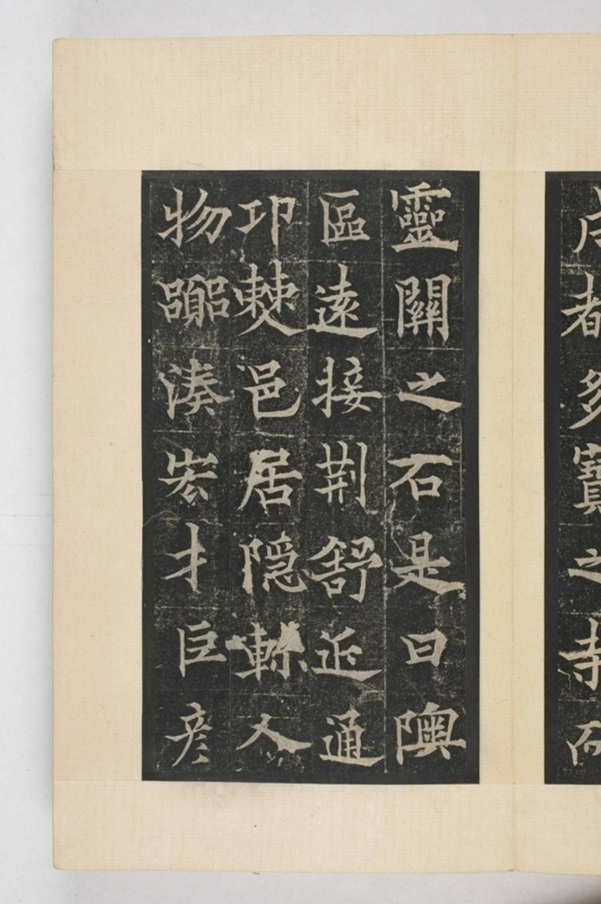 都多寶之寺
靈關之石是曰隩
區遠接荆舒近通
邛僰邑居隱軫人
物囂湊宏才巨彦